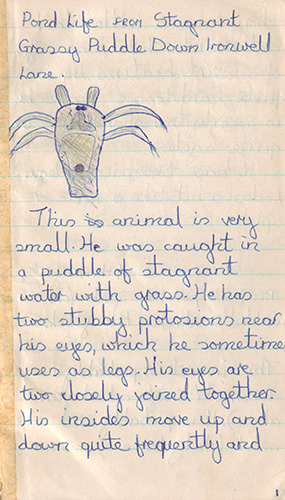 Pond Life FROM Stagnant
Grassy Puddle Down Ironwell
Lane.
This is animal is very
small. He was caught in
a puddle of stagnant
water with grass. He has
two stubby protosions near
his eyes, which he sometime
uses as legs. His eyes are
two closely joined together.
His insides move up and
down quite frequently and
1